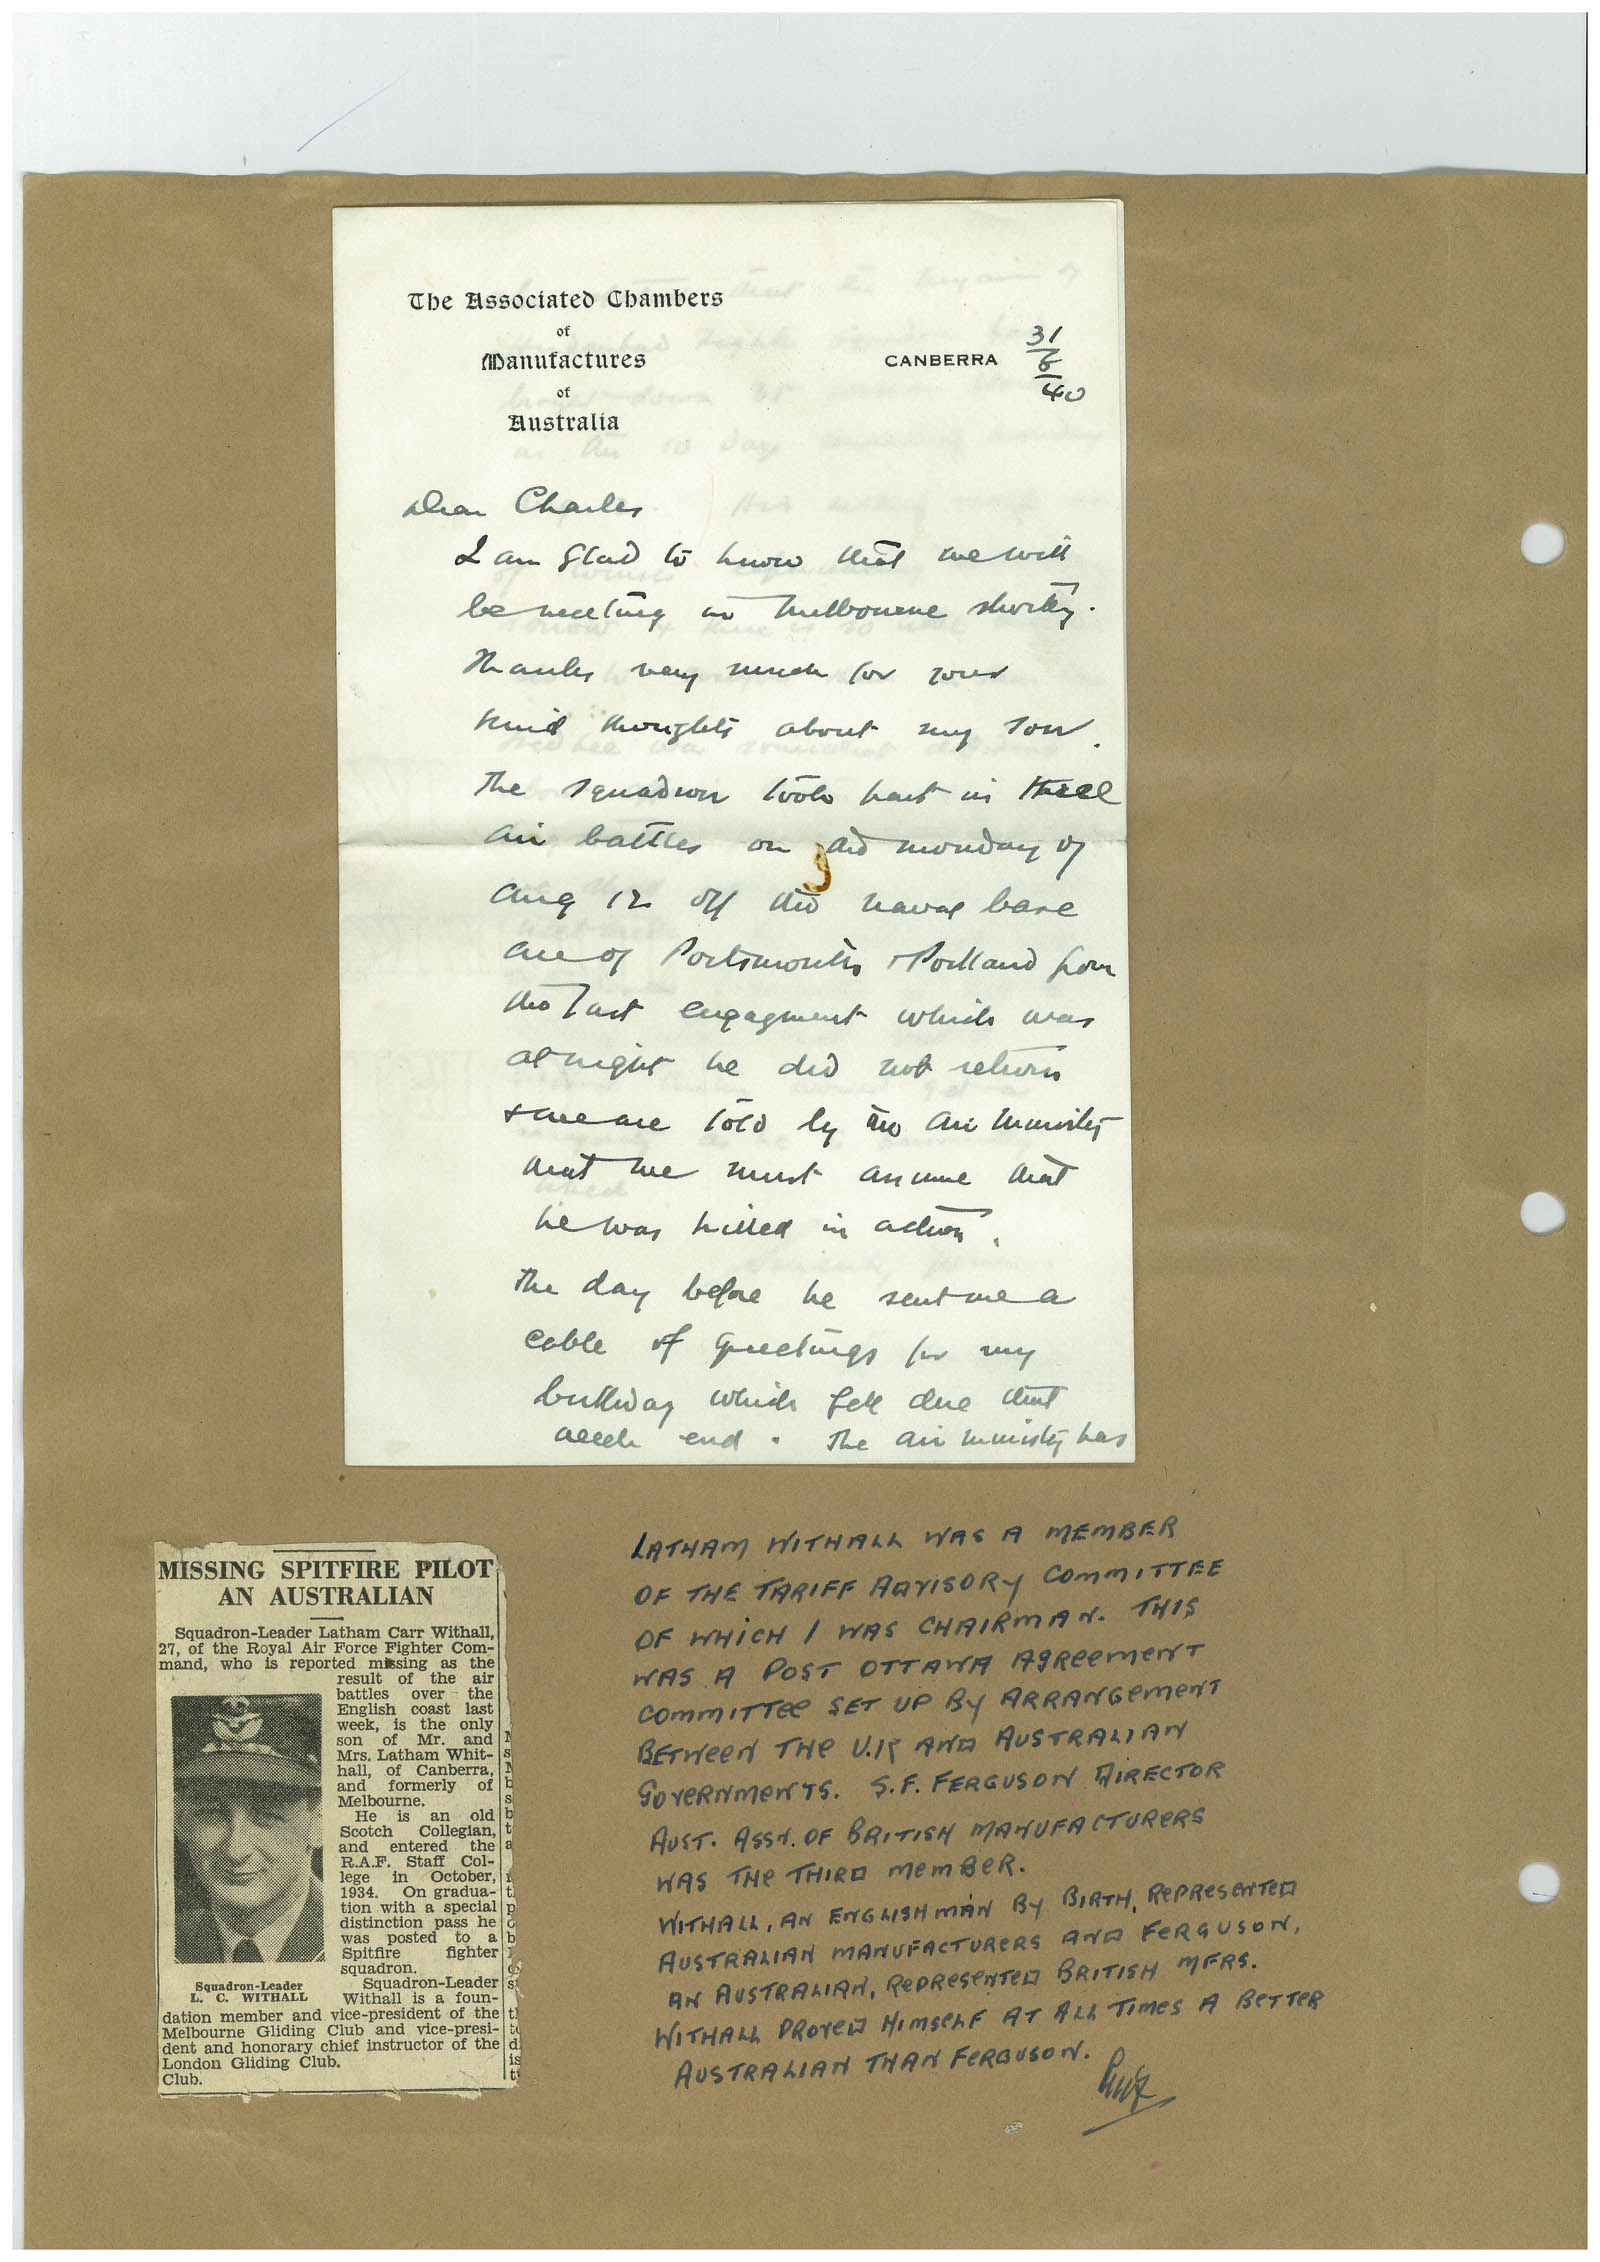 The Associated Chambers
of
Manufactures
of
Australia
CANBERRA
31
8
40
Dear Charles
I am glad to know that we will
be meeting in Melbourne shortly.
Thanks very much for your
kind thoughts about my son.
The squadron took part in three
air battles on the monday of
Aug 12 off the naval base
of Portsmouth & Portland from
the last engagment which was
at night he did not return
& we are told by the Air Ministry
that we must assume that
he was killed in action.
The day before he sent me a
cable of greetings for my
birthday which fell due that
week end. The Air Ministry has
MISSING SPITFIRE PILOT
AN AUSTRALIAN
Squadron-Leader Latham Carr Withall,
27, of the Royal Air Force Fighter Com-
mand, who is reported missing as the
result of the air
battles over the
English coast last
week, is the only
son of Mr. and
Mrs. Latham Whit-
hall, of Canberra,
and formerly of
Melbourne.
He is an old
Scotch Collegian,
and entered the
R.A.F. Staff Col-
lege in October,
1934. On gradua-
tion with a special
distinction pass he
was posted to a
Spitfire fighter
squadron.
Squadron-Leader
Withall is a foun-
dation member and vice-president of the
Melbourne Gliding Club and vice-presi-
dent and honorary chief instructor of the
London Gliding Club.
Club.
Squadron-Leader
L. C. WITHALL
LATHAM WITHALL WAS A MEMBER
OF THE TARIFF ADVISORY COMMITTEE
OF WHICH I WAS CHAIRMAN. THIS
WAS A POST OTTAWA AGREEMENT
COMMITTEE SET UP BY ARRANGEMENT
BETWEEN THE U.K AND AUSTRALIAN
GOVERNMENTS. S.F. FERGUSON DIRECTOR
AUST. ASSN. OF BRITISH MANUFACTURERS
WAS THE THIRD MEMBER.
WITHALL, AN ENGLISHMAN BY BIRTH, REPRESENTED
AUSTRALIAN MANUFACTURERS AND FERGUSON,
AN AUSTRALIAN, REPRESENTED BRITISH MFRS.
WITHALL PROVED HIMSELF AT ALL TIMES A BETTER
AUSTRALIAN THAN FERGUSON.